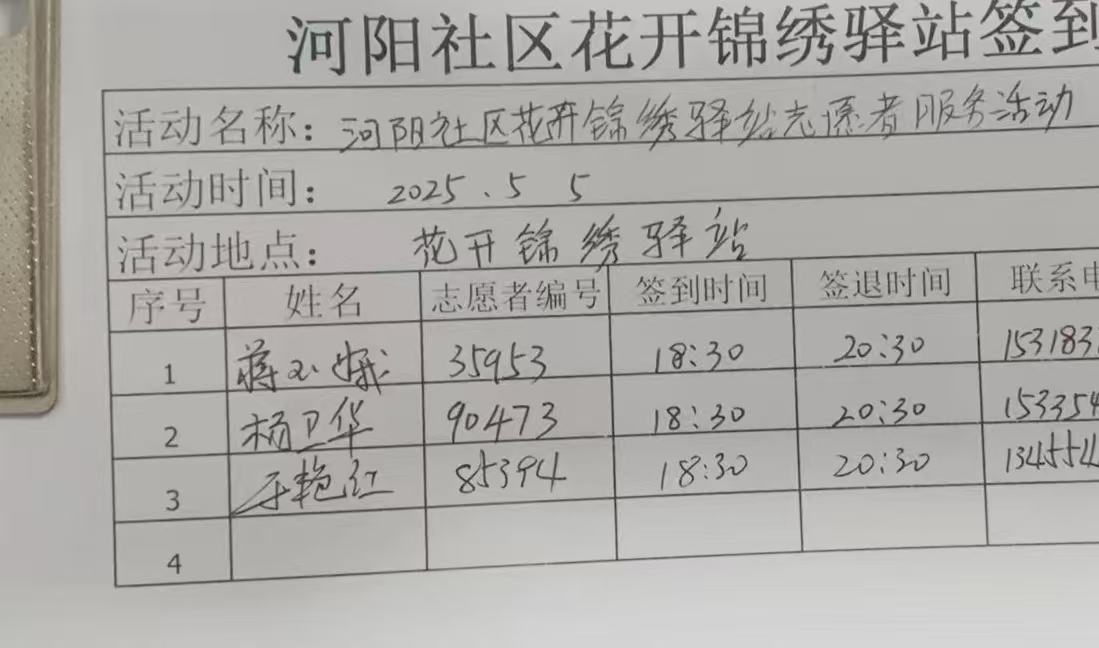 河阳社区花开锦绣驿站签到
活动名称：河阳社区花开锦绣驿站志愿者服务活动
活动时间： 2025.5 5
活动地点： 花开锦绣驿站
序号 姓名 志愿者编号 签到时间 签退时间 联系电
1 蒋 35953 18:30 20:30 153183
2 杨卫华 90473 18:30 20:30 153354
3 于艳红 85394 18:30 20:30 134554
4